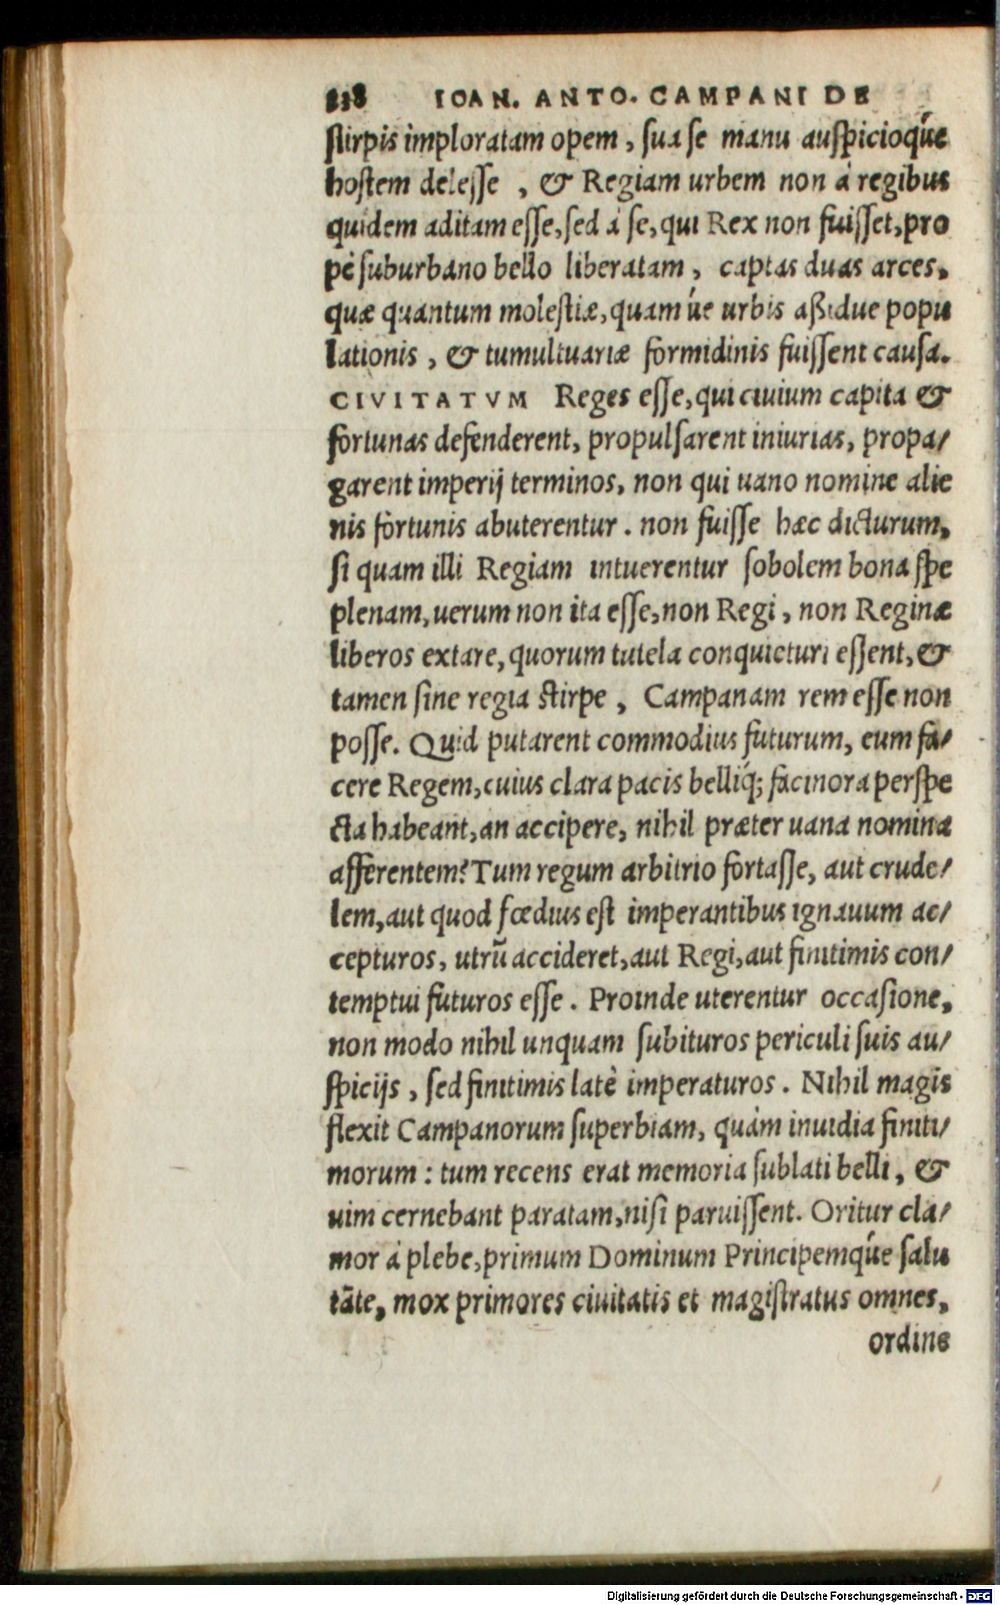 238 IOAN. ANTO. CAMPANI DE
ſtirpis imploratam opem, ſua ſe manu auſpicioq́ue
hoſtem deleſſe, & Regiam urbem non à regibus
quidem aditam eſſe, ſed à ſe, qui Rex non fuiſſet, pro
pè ſuburbano bello liberatam, captas duas arces,
quæ quantum moleſtiæ, quam úe urbis aßidue popu
lationis, & tumultuariæ formidinis fuiſſent cauſa.
CIVITATVM Reges eſſe, qui ciuium capita &
fortunas defenderent, propulſarent iniurias, propa/
garent imperij terminos, non qui uano nomine alie
nis fortunis abuterentur. non fuiſſe hæc dicturum,
ſi quam illi Regiam intuerentur ſobolem bona ſpe
plenam, uerum non ita eſſe, non Regi, non Reginæ
liberos extare, quorum tutela conquieturi eſſent, &
tamen ſine regia ſtirpe, Campanam rem eſſe non
poſſe. Quid putarent commodius futurum, eum fa/
cere Regem, cuius clara pacis belliq́; facinora perſpe
cta habeant, an accipere, nihil præter uana nomina
afferentem? Tum regum arbitrio fortaſſe, aut crude/
lem, aut quod fœdius eſt imperantibus ignauum ac/
cepturos, utrũ accideret, aut Regi, aut finitimis con/
temptui futuros eſſe. Proinde uterentur occaſione,
non modo nihil unquam ſubituros periculi ſuis au/
ſpicijs, ſed finitimis latè imperaturos. Nihil magis
flexit Campanorum ſuperbiam, quàm inuidia finiti/
morum: tum recens erat memoria ſublati belli, &
uim cernebant paratam, niſi paruiſſent. Oritur cla/
mor à plebe, primum Dominum Principemq́ue ſalu
tãte, mox primores ciuitatis et magiſtratus omnes,
ordine
Digitalisierung gefördert durch die Deutsche Forschungsgemeinschaft - DFG